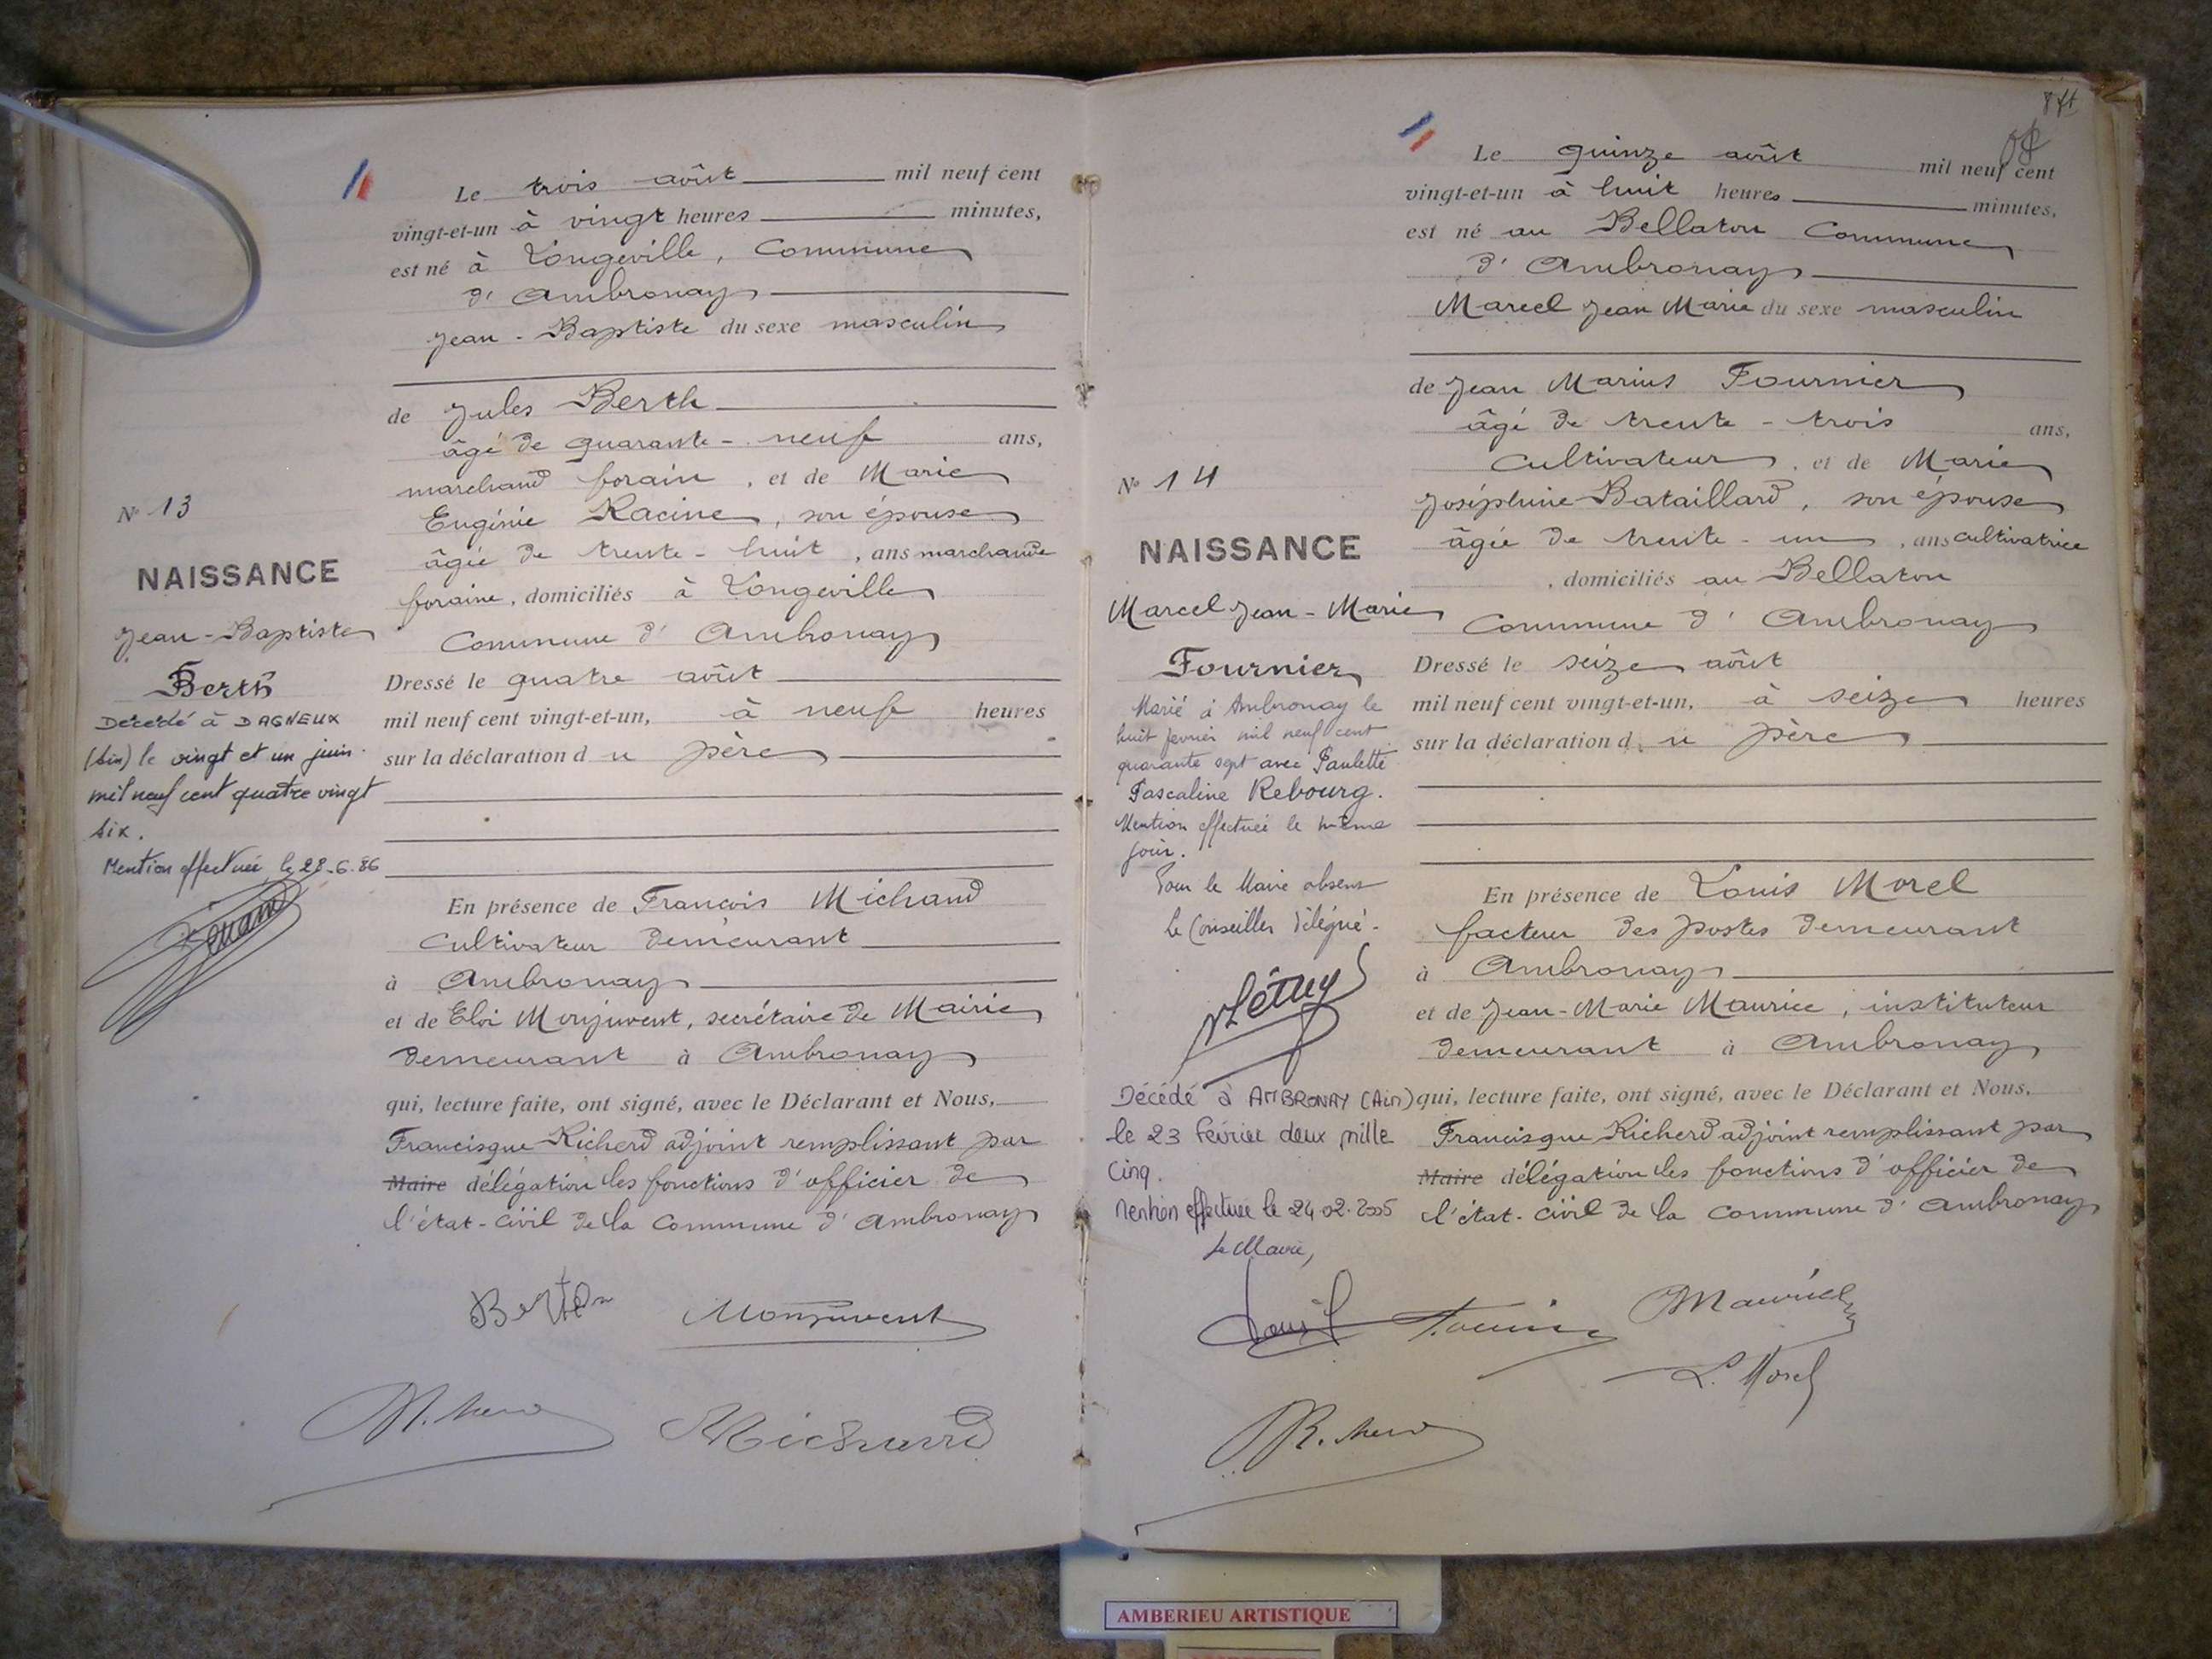 Nº 13
NAISSANCE
Jean-Baptiste
Berth
Décédé à DAGNEUX
(Ain) le vingt et un juin
mil neuf cent quatre vingt
six.
Mention effectuée le 28-6-86
Le trois août mil neuf cent
vingt-et-un à vingt heures minutes,
est né à Longeville, Commune
d'Ambronay
Jean-Baptiste du sexe masculin
de Jules Berth
âgé de quarante-neuf ans,
marchand forain, et de Marie
Eugénie Racine, son épouse
âgée de trente-huit, ans marchande
foraine, domiciliés à Longeville
Commune d'Ambronay
Dressé le quatre août
mil neuf cent vingt-et-un, à neuf heures
sur la déclaration du père
En présence de François Michaud
Cultivateur demeurant
à Ambronay
et de Eloi Monjuvent, secrétaire de Mairie
demeurant à Ambronay
qui, lecture faite, ont signé, avec le Déclarant et Nous,
Francisque Richerd adjoint remplissant par
Maire délégation les fonctions d'officier de
l'état-civil de la Commune d'Ambronay
Berth
Monjuvent
Michaud
Nº 14
NAISSANCE
Marcel Jean-Marie
Fournier
Marié à Ambronay le
huit février mil neuf cent
quarante sept avec Paulette
Pascaline Rebourg.
Mention effectuée le même
jour.
Pour le Maire absent
le Conseiller délégué.
Décédé à AMBRONAY (Ain)
le 23 février deux mille
cinq.
Mention effectuée le 24.02.2005
Le Maire,
Le quinze août mil neuf cent
vingt-et-un à huit heures minutes,
est né au Bellaton Commune
d'Ambronay
Marcel Jean Marie du sexe masculin
de Jean Marius Fournier
âgé de trente-trois ans,
Cultivateur, et de Marie
Joséphine Bataillard, son épouse
âgée de trente-un, ans cultivatrice
, domiciliés au Bellaton
Commune d'Ambronay
Dressé le seize août
mil neuf cent vingt-et-un, à seize heures
sur la déclaration du père
En présence de Louis Morel
facteur des postes demeurant
à Ambronay
et de Jean-Marie Maurice, instituteur
demeurant à Ambronay
qui, lecture faite, ont signé, avec le Déclarant et Nous,
Francisque Richerd adjoint remplissant par
Maire délégation les fonctions d'officier de
l'état-civil de la Commune d'Ambronay
Maurice
L. Morel
AMBERIEU ARTISTIQUE